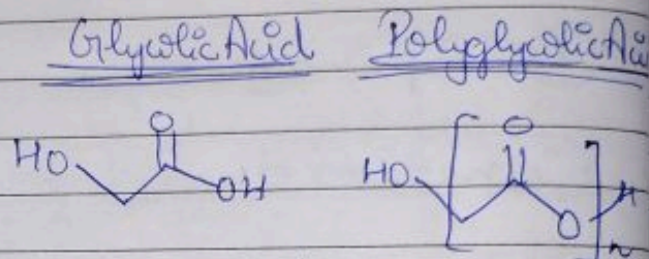 Glycolic Acid Polyglycolic Aci
O O
HO OH HO O H
n